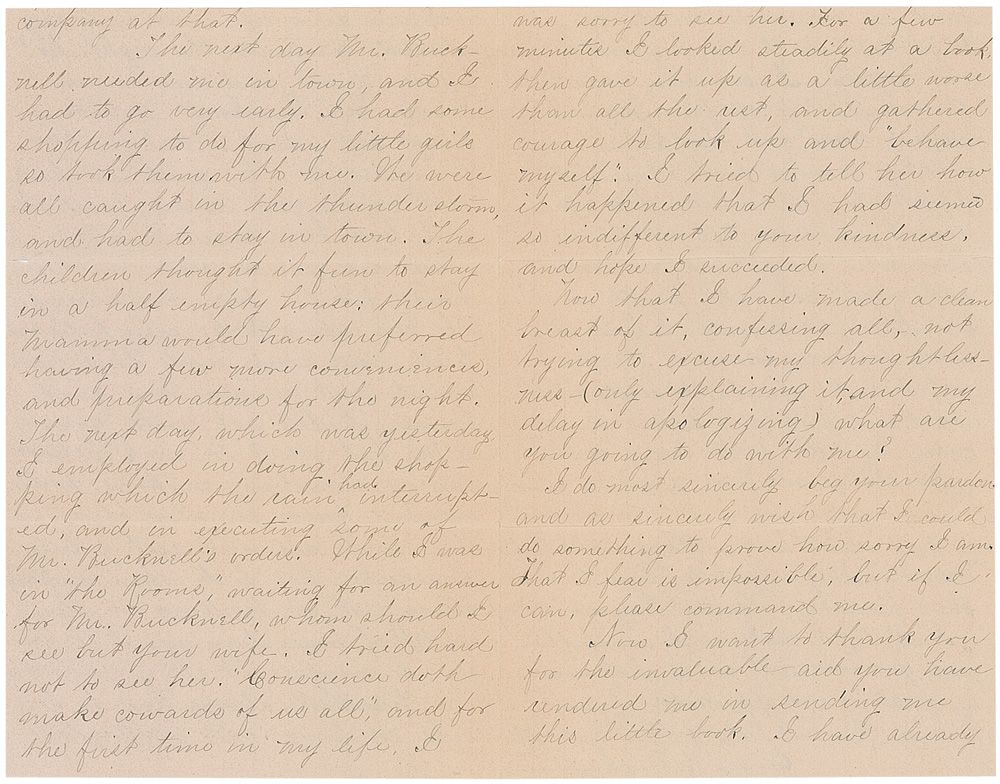 company at that.
The next day Mr. Buck-
nell needed me in town, and I
had to go very early. I had some
shopping to do for my little girls
so took them with me. We were
all caught in the thunder storm,
and had to stay in town. The
children thought it fun to stay
in a half empty house: their
Mamma would have preferred
having a few more conveniences,
and preparations for the night.
The next day, which was yesterday,
I employed in doing the shop-
ping which the rain had interrupt-
ed, and in executing some of
Mr. Bucknell's orders. While I was
in "the Rooms", waiting for an answer
for Mr. Bucknell, whom should I
see but your wife. I tried hard
not to see her. "Conscience doth
make cowards of us all", and for
the first time in my life, I
was sorry to see her. For a few
minutes I looked steadily at a book,
then gave it up as a little worse
than all the rest, and gathered
courage to look up and "behave
myself". I tried to tell her how
it happened that I had seemed
so indifferent to your kindness,
and hope I succeeded.
Now that I have made a clean
breast of it, confessing all, not
trying to excuse my thoughtless-
ness - (only explaining it, and my
delay in apologizing) what are
you going to do with me?
I do most sincerely beg your pardon
and as sincerely wish that I could
do something to prove how sorry I am.
That I fear is impossible, but if I
can, please command me.
Now I want to thank you
for the invaluable aid you have
rendered me in sending me
this little book. I have already